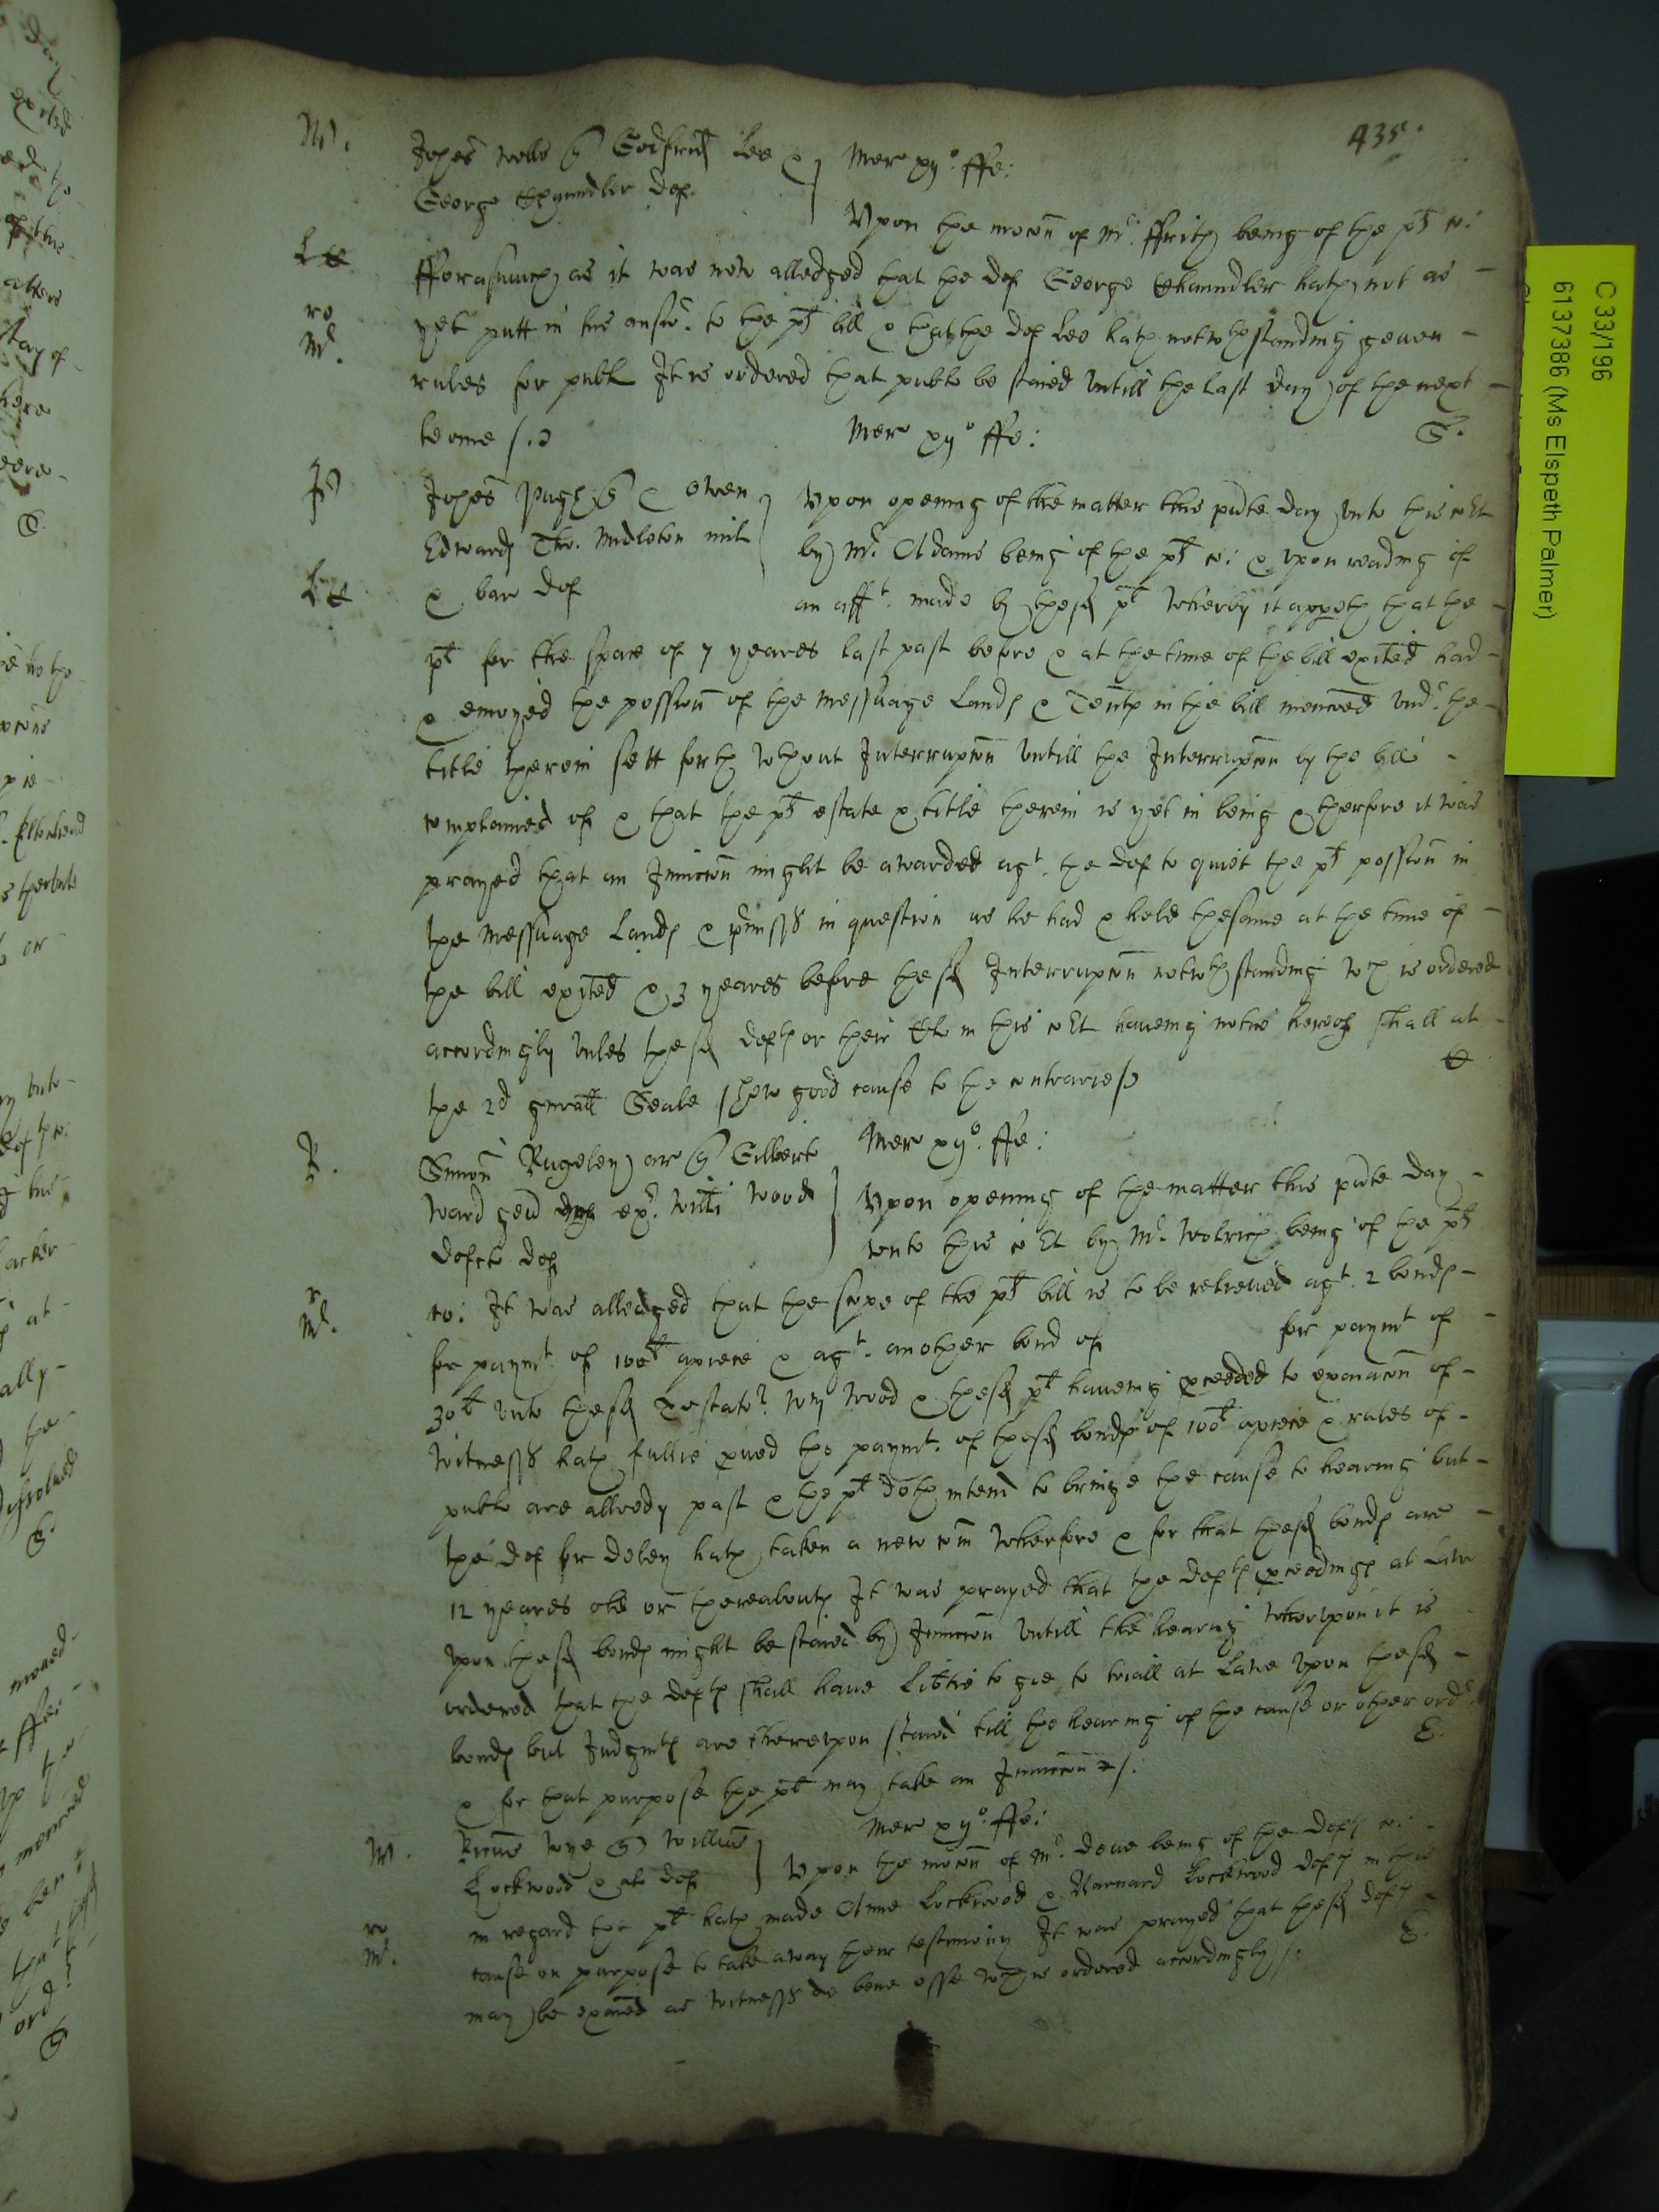 435.
Johes Wells Godfrid Lee &
George Chaundler def
Mer xij° ffe:
Upon the mocon of Mr. being of the pts co:
fforasmuch as it was now alledged that the def George Chaundler hath not as
yet putt in his answ. to the pts bill & that the def Lee hath notwthstanding geven
rules for publ It is ordered that publ be staied untill the last day of the next
terme
Mer xij° ffe:
Johes Pugh & Owen
Edwards Tho. Midleton milt
& bar def
Upon opening of the matter this pnte day unto this Cort
by Mr. Adams being of the pts co: & upon reading of
an afft. made by the sd pt wherby it appeth that the
pt for the space of 7 yeares last past before & at the time of the bill exited had
& enioyed the possion of the messuage Lands & Tents in the bill menconed und. the
title therein sett forth wthout Interrupcon untill the Interrupcon by the bill
complained of & that the pts estate & title therein is yet in being & therfore it was
prayed that an Iniunccon might be awarded agt. the def to quiet the pts possion in
the messuage Lands & pmisses in question as he had & held the same at the time of
the bill exited & 3 yeares before the sd Interrupcon notwthstanding wch is ordered
accordingly unles the sd defts or their Clke in this Cort haveing notice hereof shall at
the 2d gnrall Seale shew good cause to the contrarie
Mer xij°. ffe:
Simon Rugeley ar Gilberte
Ward gen exr. Willi Wood
defcte def
Upon opening of the matter this pnte day
unto this Cort by Mr. Wolrich being of the pts
co: It was alledged that the scope of the pts bill is to be releived agt. 2 bonds
for paymt of 100li apeice & agt. another bond of for paymt of
30li unto the sd Testator Wm Wood & the sd pt haveing pceeded to exaiacon of
witnesses hath fullie pved the paymt. of the sd bonds of 100li apeice & rules of
publ are allredy past & the pt doth intend to bringe the cause to hearing but
the def for deley hath taken a new com Wherfore & for that the sd bonds are
12 yeares old or thereabouts It was prayed that the defts pceedings at Law
upon the sd bonds might be staied by Iniunccon untill the hearing wherupon it is
ordered that the defts shall have Libtie to goe to triall at Lawe upon the sd
bonds but Judgmts are thereupon staied till the hearing of the cause or other ordr.
& for that purpose the pt may take an Iniunccon
Mer xij°. ffe:
Wye Willm
Lockwood & als def
Upon the mocon of Mr. Dove being of the defts co:
in regard the pt hath made Anne Lockwood & Barnard Lockwood defts in this
cause on purpose to take away their testimony It was prayed that the sd defts
may be exaied as witnesses de bene esse wch is ordered accordingly
C 33/196
6137386 (Ms Elspeth Palmer)